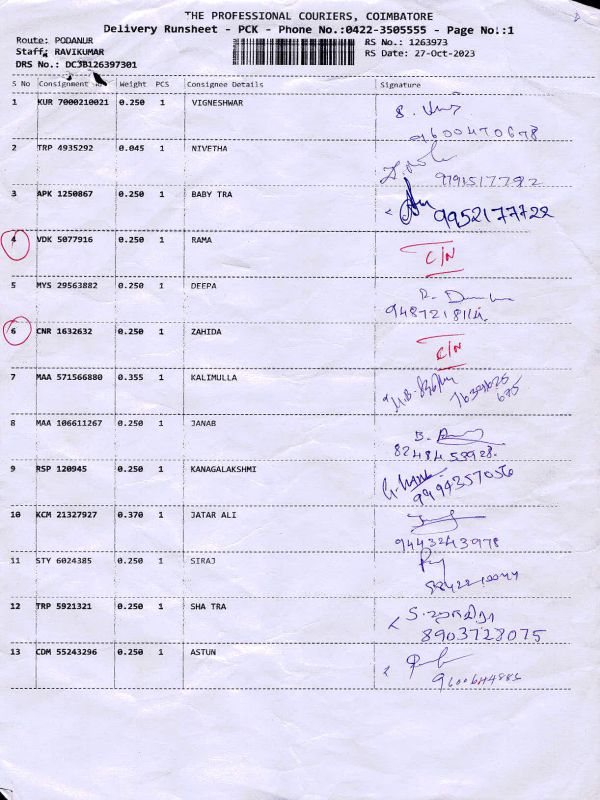 THE PROFESSIONAL COURIERS, COIMBATORE
Delivery Runsheet - PCK - Phone No.:0422-3505555 - Page No.:1
Route: PODANUR
RS No.: 1263973
Staff: RAVIKUMAR
RS Date: 27-Oct-2023
DRS No.: DC3B126397301
S No Consignment Weight PCS Consignee Details Signature
1 KUR 7000210021 0.250 1 VIGNESHWAR
9600470678
2 TRP 4935292 0.045 1 NIVETHA
9791517792
3 APK 1250867 0.250 1 BABY TRA
9952177722
4 VDK 5077916 0.250 1 RAMA C/N
5 MYS 29563882 0.250 1 DEEPA
6 CNR 1632632 0.250 1 ZAHIDA C/N
7 MAA 571566880 0.355 1 KALIMULLA
8 MAA 106611267 0.250 1 JANAB
8248458928
9 RSP 120945 0.250 1 KANAGALAKSHMI
9994357056
10 KCM 21327927 0.370 1 JATAR ALI
9443243978
11 STY 6024385 0.250 1 SIRAJ
12 TRP 5921321 0.250 1 SHA TRA
8903728075
13 CDM 55243296 0.250 1 ASTUN